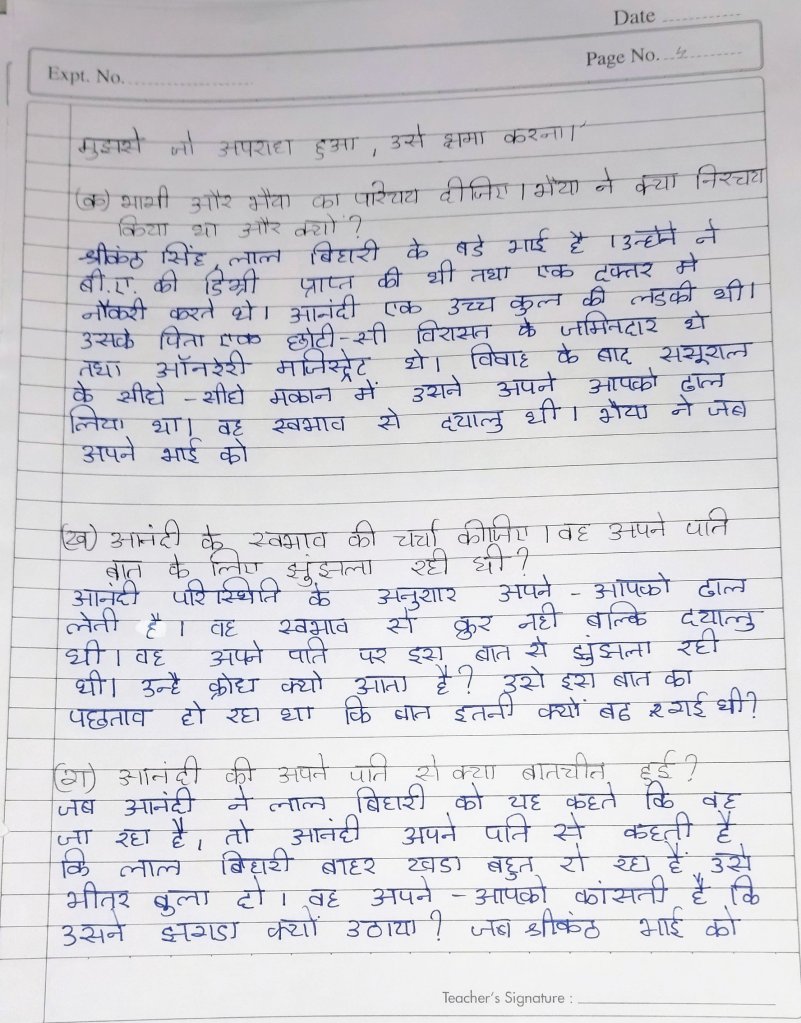 Date
Page No. 4
Expt. No.
मुझसे जो अपराध हुआ, उसे क्षमा करना।"
(क) भाभी और भैया का परिचय दीजिए। भैया ने क्या निश्चय
किया था और क्यों?
श्रीकंठ सिंह, लाल बिहारी के बडे भाई है। उन्होने ने
बी.ए. की डिग्री प्राप्त की थी तथा एक दफ्तर मे
नौकरी करते थे। आनंदी एक उच्च कुल की लडकी थी।
उसके पिता एक छोटी-सी विरासत के जमिनदार थे
तथा ऑनरेरी मजिस्ट्रेट थे। विवाह के बाद ससूराल
के सीधे-सीधे मकान में उसने अपने आपको ढाल
लिया था। वह स्वभाव से दयालु थी। भैया ने जब
अपने भाई को
(ख) आनंदी के स्वभाव की चर्चा कीजिए। वह अपने पति
बात के लिए झुंझला रही थी?
आनंदी परिस्थिति के अनुसार अपने-आपको ढाल
लेती है। वह स्वभाव से क्रुर नही बल्कि दयालु
थी। वह अपने पति पर इस बात से झुंझला रही
थी। उन्है क्रोध क्यो आता है? उसे इस बात का
पछताव हो रहा था कि बात इतनी क्यों बढ गई थी?
(ग) आनंदी की अपने पति से क्या बातचीत हुई?
जब आनंदी ने लाल बिहारी को यह कहते कि वह
जा रहा है, तो आनंदी अपने पति से कहती है
कि लाल बिहारी बाहर खडा बहुत रो रहा है उसे
भीतर बुला दो। वह अपने-आपको कांसती है कि
उसने झगडा क्यों उठाया? जब श्रीकंठ भाई को
Teacher's Signature :